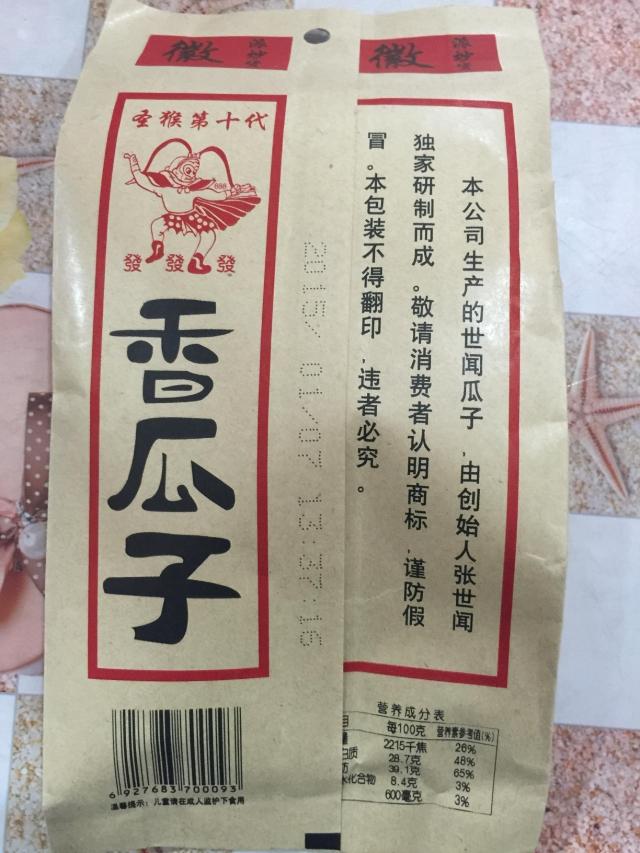 徽
徽
圣猴第十代
888
發發發
香瓜子
2015/01/07 13:37:16
本公司生产的世闻瓜子，由创始人张世闻
独家研制而成。敬请消费者认明商标，谨防假
冒。本包装不得翻印，违者必究。
营养成分表
目 每100克 营养素参考值(%)
量 2215千焦 26%
白质 28.7克 48%
肪 39.1克 65%
水化合物 8.4克 3%
600毫克 3%
6927683700093
温馨提示：儿童请在成人监护下食用